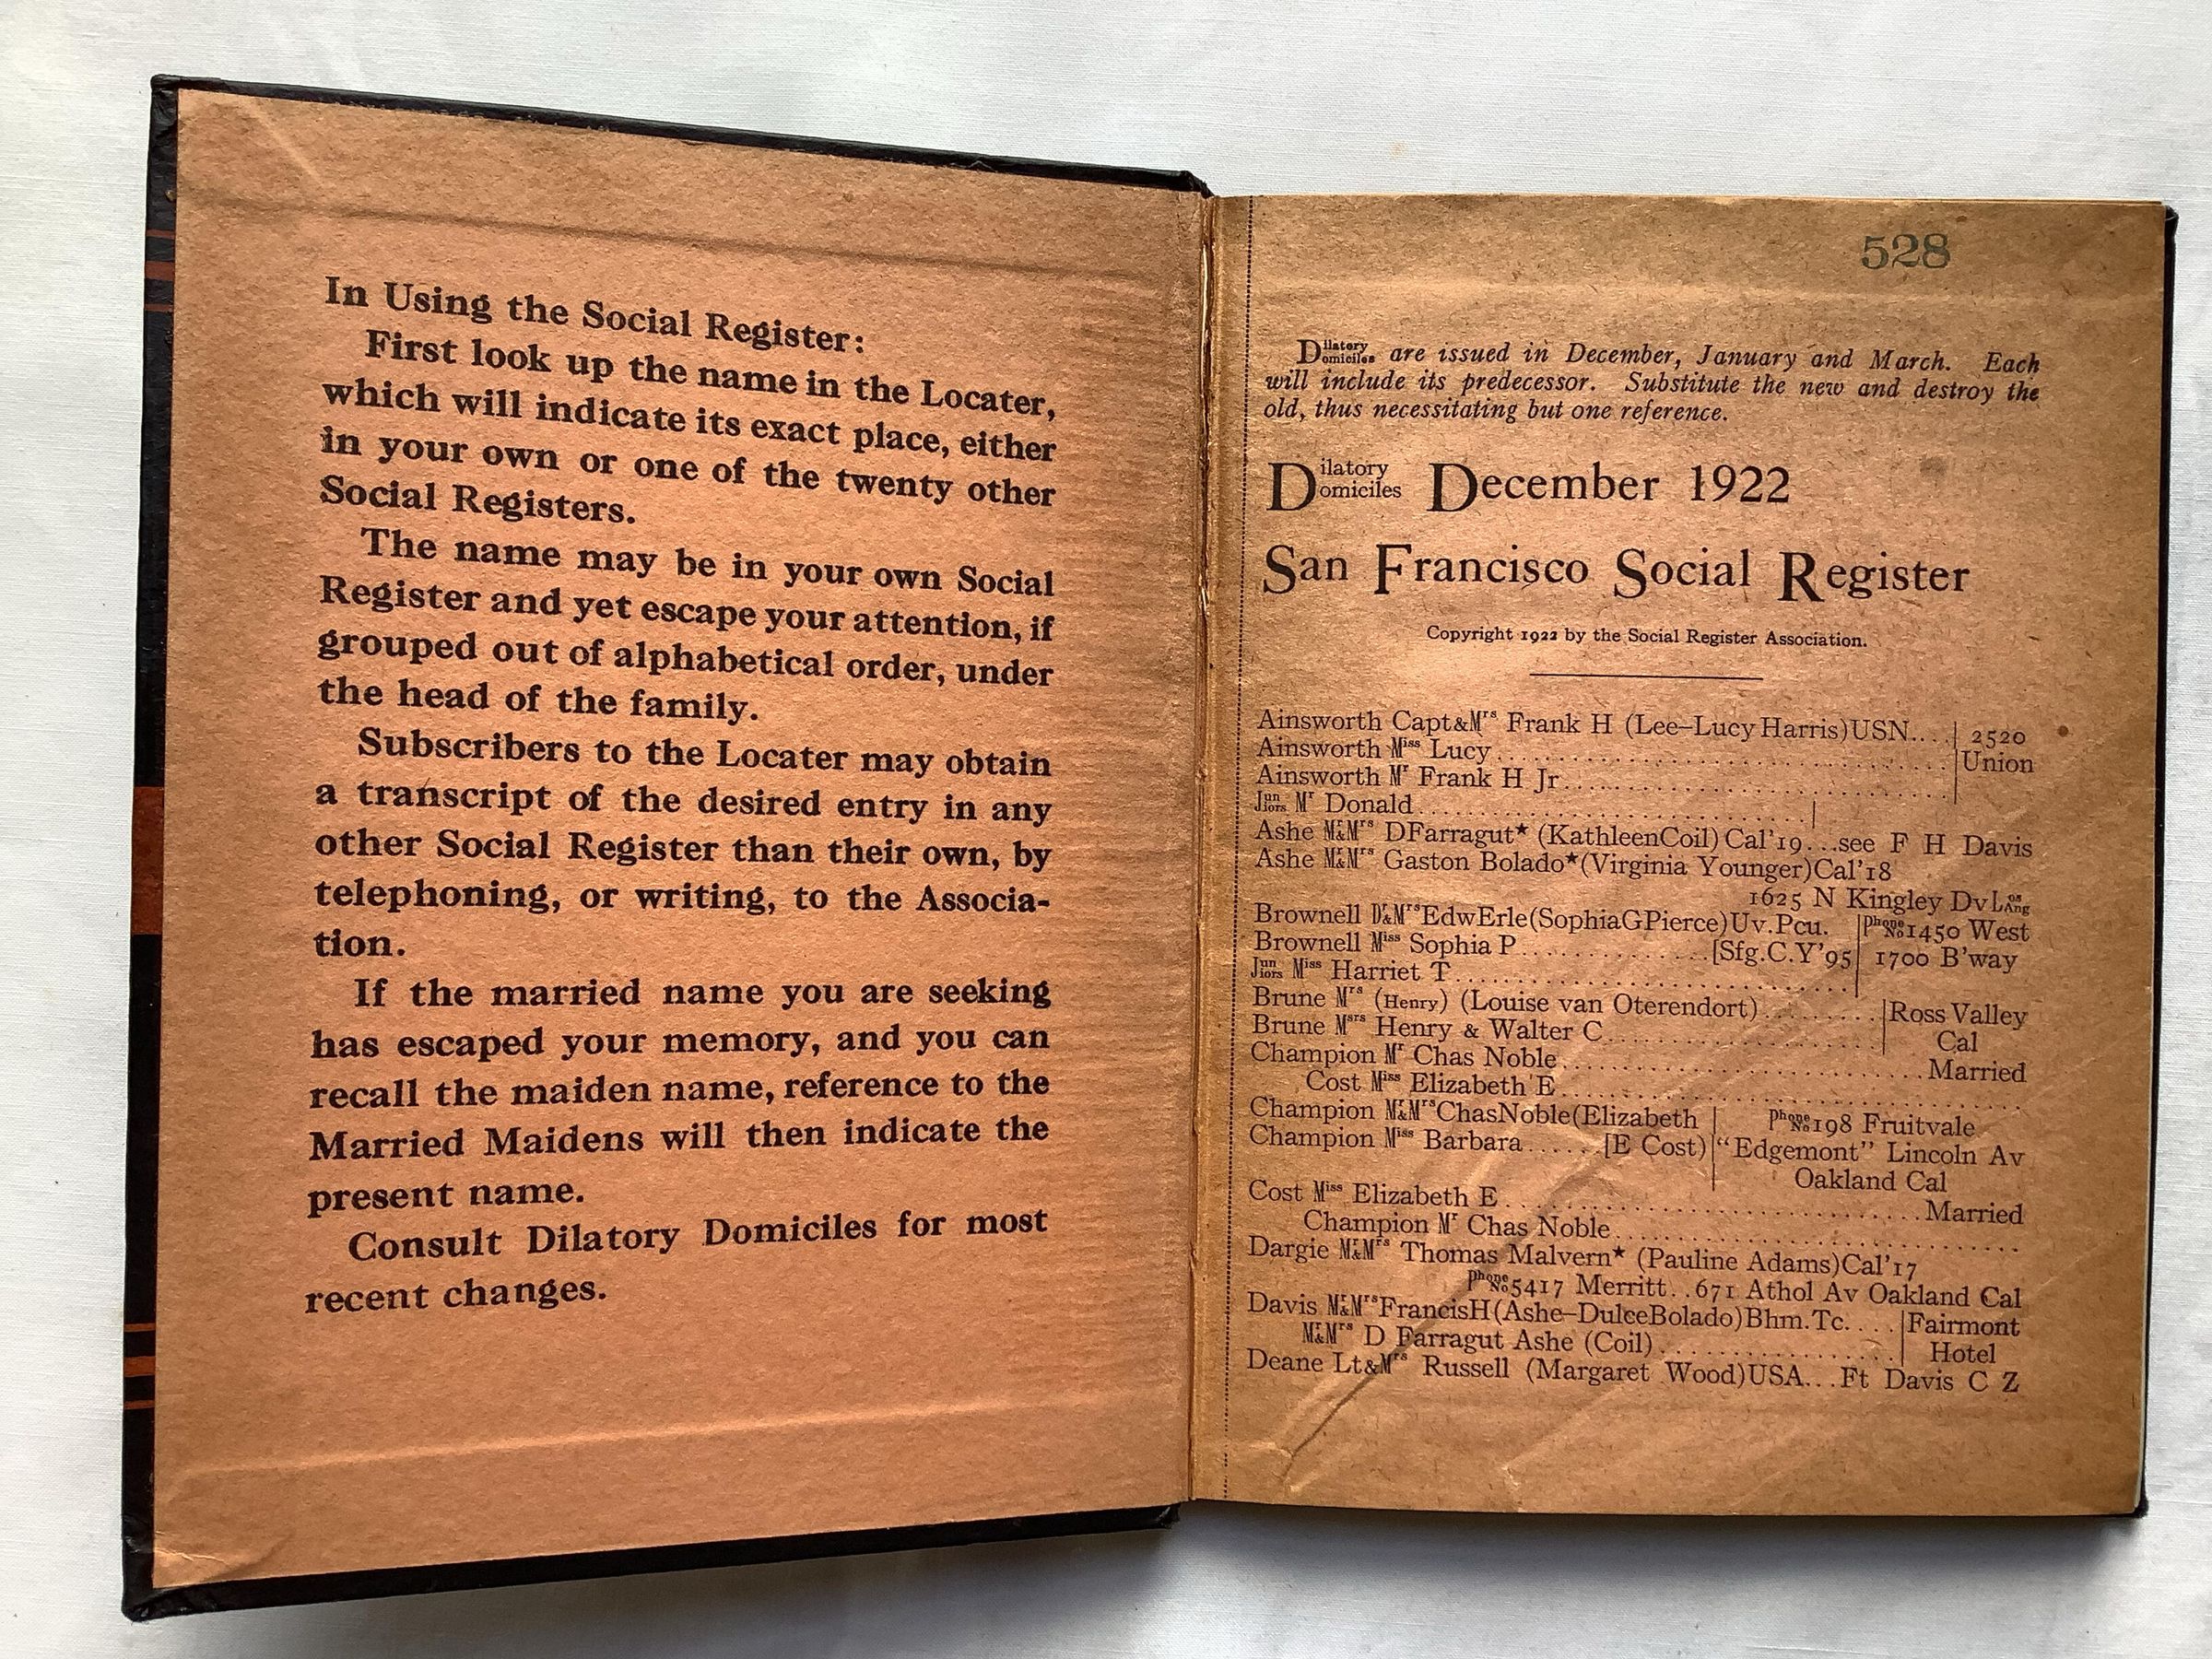 In Using the Social Register:
First look up the name in the Locater,
which will indicate its exact place, either
in your own or one of the twenty other
Social Registers.
The name may be in your own Social
Register and yet escape your attention, if
grouped out of alphabetical order, under
the head of the family.
Subscribers to the Locater may obtain
a transcript of the desired entry in any
other Social Register than their own, by
telephoning, or writing, to the Associa-
tion.
If the married name you are seeking
has escaped your memory, and you can
recall the maiden name, reference to the
Married Maidens will then indicate the
present name.
Consult Dilatory Domiciles for most
recent changes.
528
Dilatory Domiciles are issued in December, January and March. Each
will include its predecessor. Substitute the new and destroy the
old, thus necessitating but one reference.
Dilatory Domiciles December 1922
San Francisco Social Register
Copyright 1922 by the Social Register Association.
Ainsworth Capt&Mrs Frank H (Lee–Lucy Harris)USN.... 2520
Ainsworth Miss Lucy.......... Union
Ainsworth Mr Frank H Jr..........
Juniors Mr Donald..........
Ashe Mr&Mrs DFarragut★ (KathleenCoil) Cal'19...see F H Davis
Ashe Mr&Mrs Gaston Bolado★(Virginia Younger)Cal'18
1625 N Kingley Dv Los Ang
Brownell Dr&Mrs EdwErle(SophiaGPierce)Uv.Pcu. Phone No 1450 West
Brownell Miss Sophia P..........[Sfg.C.Y'95 1700 B'way
Juniors Miss Harriet T..........
Brune Mrs (Henry) (Louise van Oterendort).......... Ross Valley
Brune Msrs Henry & Walter C.......... Cal
Champion Mr Chas Noble..........Married
Cost Miss Elizabeth E..........
Champion Mr&Mrs ChasNoble(Elizabeth Phone No 198 Fruitvale
Champion Miss Barbara......[E Cost) "Edgemont" Lincoln Av
Oakland Cal
Cost Miss Elizabeth E..........Married
Champion Mr Chas Noble..........
Dargie Mr&Mrs Thomas Malvern★ (Pauline Adams)Cal'17
Phone No 5417 Merritt..671 Athol Av Oakland Cal
Davis Mr&Mrs FrancisH(Ashe–DulceBolado)Bhm.Tc.... Fairmont
Mr&Mrs D Farragut Ashe (Coil).......... Hotel
Deane Lt&Mrs Russell (Margaret Wood)USA...Ft Davis C Z